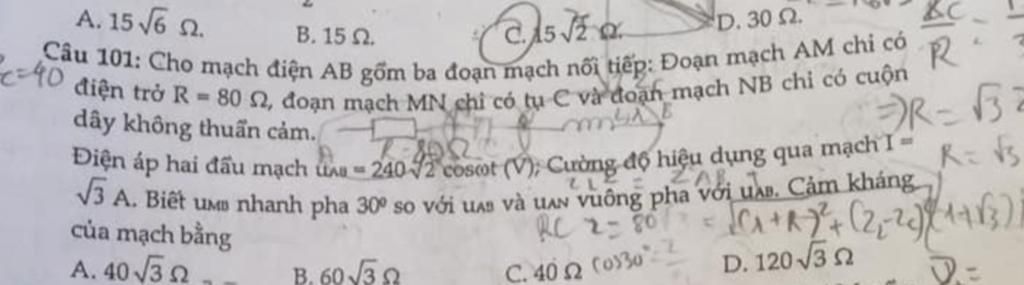 A. 15√6 Ω. B. 15 Ω. C. 15√2 Ω. D. 30 Ω.
Câu 101: Cho mạch điện AB gồm ba đoạn mạch nối tiếp: Đoạn mạch AM chỉ có
điện trở R = 80 Ω, đoạn mạch MN chỉ có tụ C và đoạn mạch NB chỉ có cuộn
dây không thuần cảm.
Điện áp hai đầu mạch uAB = 240√2 cosωt (V); Cường độ hiệu dụng qua mạch I =
√3 A. Biết uMB nhanh pha 30⁰ so với uAB và uAN vuông pha với uAB. Cảm kháng
của mạch bằng
A. 40√3 Ω B. 60√3 Ω C. 40 Ω D. 120√3 Ω